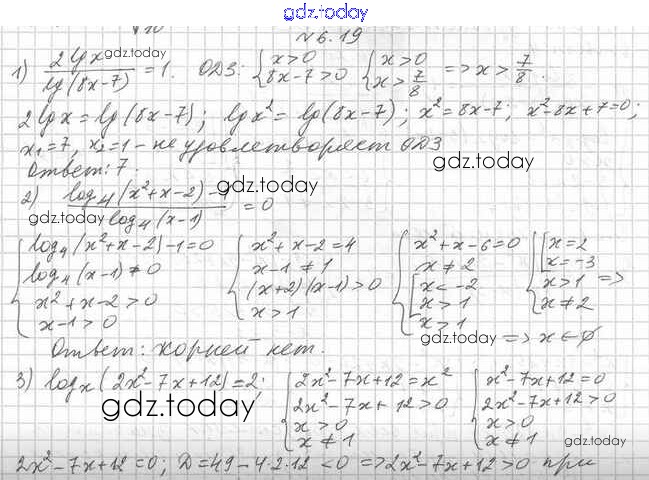 gdz.today
№6.19
1) 2lgx / lg(8x-7) = 1. ОДЗ: { x>0 8x-7>0 { x>0 x>7/8 => x>7/8.
gdz.today
2lgx = lg(8x-7); lgx² = lg(8x-7); x² = 8x-7; x²-8x+7=0;
x₁=7, x₂=1 - не удовлетворяет ОДЗ
Ответ: 7.
gdz.today
2) log₄(x²+x-2)-1 / log₄(x-1) = 0
gdz.today
gdz.today
{ log₄(x²+x-2)-1=0 { x²+x-2=4 { x²+x-6=0 { [ x=2
log₄(x-1)≠0 x-1≠1 x≠2 x=-3
x²+x-2>0 (x+2)(x-1)>0 [ x<-2 x>1 =>
x-1>0 x>1 x>1 x≠2
x>1
gdz.today => x∈∅
Ответ: корней нет.
3) logₓ(2x²-7x+12)=2; { 2x²-7x+12=x² { x²-7x+12=0
2x²-7x+12>0 2x²-7x+12>0
gdz.today x>0 x>0
x≠1 x≠1 gdz.today
2x²-7x+12=0; D=49-4·2·12<0 => 2x²-7x+12>0 при